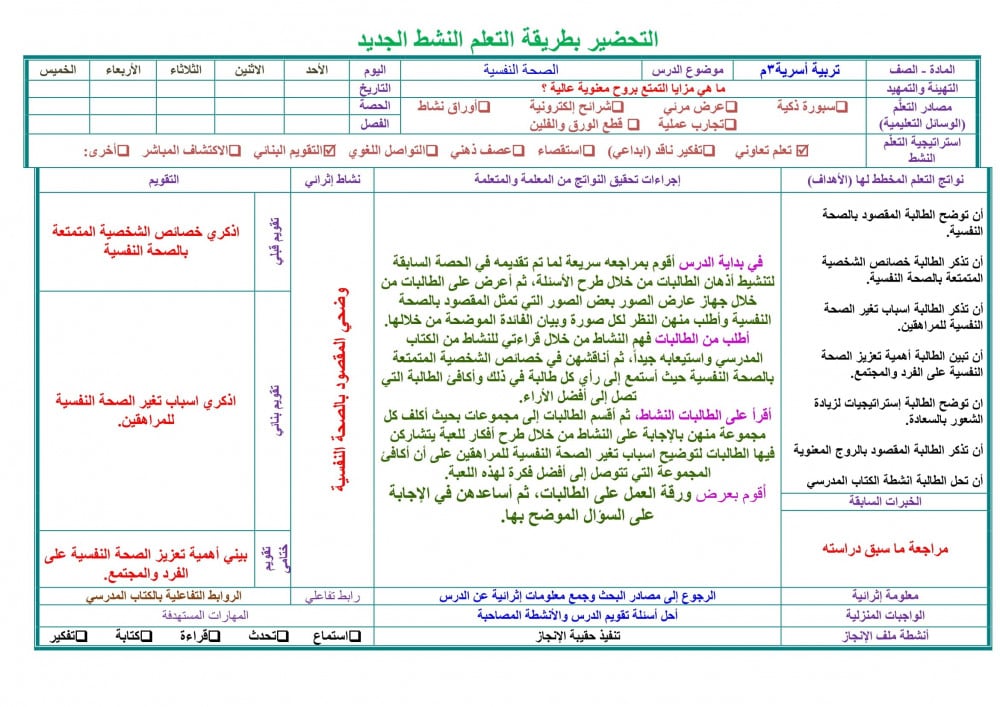 التحضير بطريقة التعلم النشط الجديد
المادة - الصف تربية أسرية٣م موضوع الدرس الصحة النفسية اليوم الأحد الاثنين الثلاثاء الأربعاء الخميس
التهيئة والتمهيد ما هي مزايا التمتع بروح معنوية عالية ؟ التاريخ
مصادر التعلّم (الوسائل التعليمية) ❑سبورة ذكية ❑عرض مرئي ❑شرائح إلكترونية ❑أوراق نشاط الحصة
❑تجارب عملية ❑ قطع الورق والفلين الفصل
استراتيجية التعلّم النشط ☑ تعلم تعاوني ❑تفكير ناقد (ابداعي) ❑استقصاء ❑عصف ذهني ❑التواصل اللغوي ☑التقويم البنائي ❑الاكتشاف المباشر ❑أخرى:
نواتج التعلم المخطط لها (الأهداف) إجراءات تحقيق النواتج من المعلمة والمتعلمة نشاط إثرائي التقويم
أن توضح الطالبة المقصود بالصحة
النفسية.
أن تذكر الطالبة خصائص الشخصية
المتمتعة بالصحة النفسية.
أن تذكر الطالبة اسباب تغير الصحة
النفسية للمراهقين.
أن تبين الطالبة أهمية تعزيز الصحة
النفسية على الفرد والمجتمع.
ان توضح الطالبة إستراتيجيات لزيادة
الشعور بالسعادة.
أن تذكر الطالبة المقصود بالروح المعنوية
أن تحل الطالبة انشطة الكتاب المدرسي
الخبرات السابقة
مراجعة ما سبق دراسته
في بداية الدرس أقوم بمراجعه سريعة لما تم تقديمه في الحصة السابقة
لتنشيط أذهان الطالبات من خلال طرح الأسئلة، ثم أعرض على الطالبات من
خلال جهاز عارض الصور بعض الصور التي تمثل المقصود بالصحة
النفسية وأطلب منهن النظر لكل صورة وبيان الفائدة الموضحة من خلالها.
أطلب من الطالبات فهم النشاط من خلال قراءتي للنشاط من الكتاب
المدرسي واستيعابه جيداً، ثم أناقشهن في خصائص الشخصية المتمتعة
بالصحة النفسية حيث أستمع إلى رأي كل طالبة في ذلك وأكافئ الطالبة التي
تصل إلى أفضل الأراء.
أقرأ على الطالبات النشاط، ثم أقسم الطالبات إلى مجموعات بحيث أكلف كل
مجموعة منهن بالإجابة على النشاط من خلال طرح أفكار للعبة يتشاركن
فيها الطالبات لتوضيح اسباب تغير الصحة النفسية للمراهقين على أن أكافئ
المجموعة التي تتوصل إلى أفضل فكرة لهذه اللعبة.
أقوم بعرض ورقة العمل على الطالبات، ثم أساعدهن في الإجابة
على السؤال الموضح بها.
وضحي المقصود بالصحة النفسية
تقويم قبلي
اذكري خصائص الشخصية المتمتعة
بالصحة النفسية
تقويم بنائي
اذكري اسباب تغير الصحة النفسية
للمراهقين.
تقويم ختامى
بيني أهمية تعزيز الصحة النفسية على
الفرد والمجتمع.
معلومة إثرائية الرجوع إلى مصادر البحث وجمع معلومات إثرائية عن الدرس رابط تفاعلي الروابط التفاعلية بالكتاب المدرسي
الواجبات المنزلية أحل أسئلة تقويم الدرس والأنشطة المصاحبة المهارات المستهدفة
أنشطة ملف الإنجاز تنفيذ حقيبة الإنجاز ❑استماع ❑تحدث ❑قراءة ❑كتابة ❑تفكير